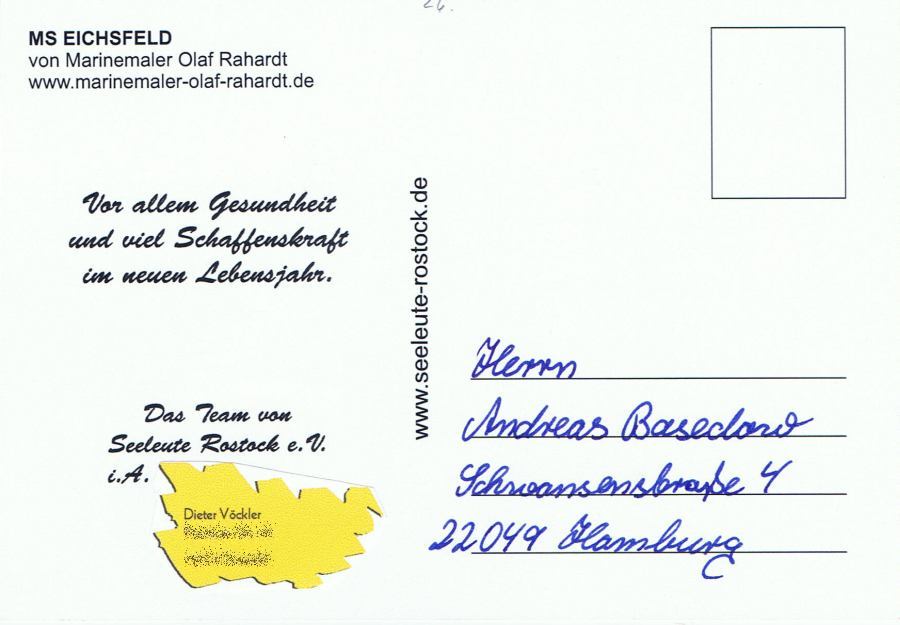 26.
MS EICHSFELD
von Marinemaler Olaf Rahardt
www.marinemaler-olaf-rahardt.de
Vor allem Gesundheit
und viel Schaffenskraft
im neuen Lebensjahr.
Das Team von
Seeleute Rostock e.V.
i.A.
Dieter Vöckler
www.seeleute-rostock.de
Herrn
Andreas Basedow
Schwansenstraße 4
22049 Hamburg